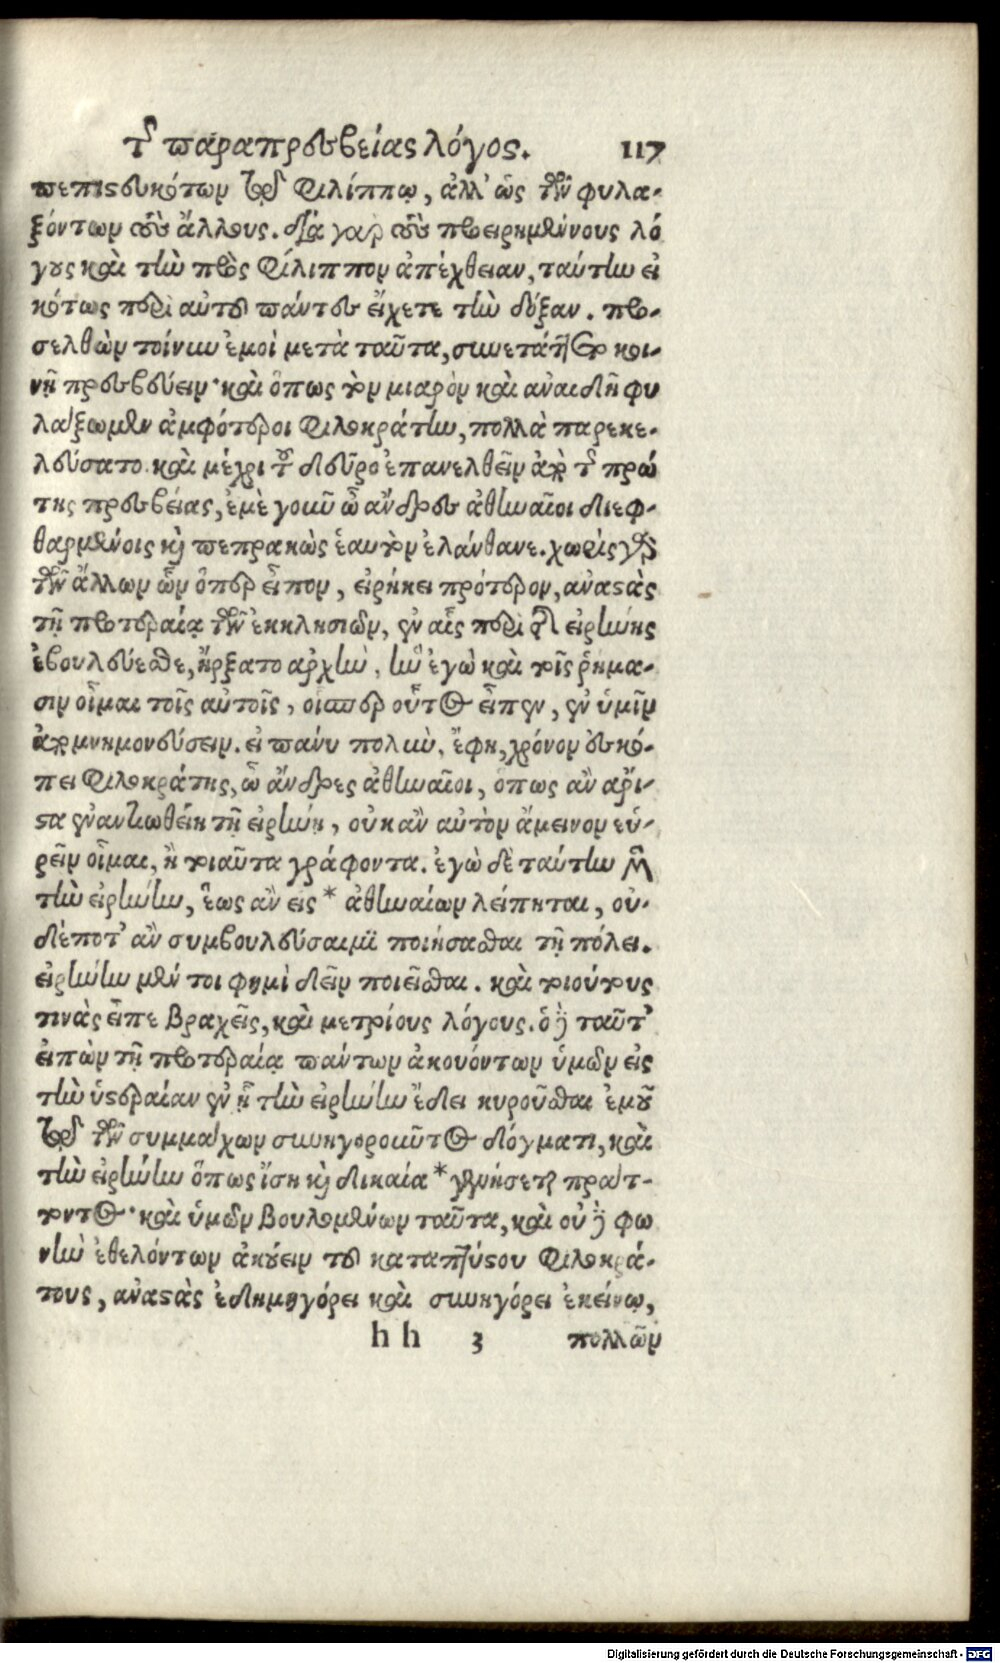 τῆς παραπρεσβείας λόγος. 117
πεπιστευκότων τῷ Φιλίππῳ, ἀλλ' ὡς τῶν φυλα-
ξόντων τοὺς ἄλλους. διὰ γὰρ τοὺς προειρημένους λό
γους καὶ τὴν πρὸς Φίλιππον ἀπέχθειαν, ταύτην εἰ
κότως περὶ αὐτοῦ πάντες εἴχετε τὴν δόξαν. προ-
σελθὼν τοίνυν ἐμοὶ μετὰ ταῦτα, συνετάττετο κοι-
νῇ πρεσβεύειν· καὶ ὅπως τὸν μιαρὸν καὶ ἀναιδῆ φυ
λάξωμεν ἀμφότεροι Φιλοκράτην, πολλὰ παρεκε-
λεύσατο. καὶ μέχρι τοῦ δεῦρο ἐπανελθεῖν ἀπὸ τῆς πρώ
της πρεσβείας, ἐμὲ γοῦν ὦ ἄνδρες ἀθηναῖοι διεφ-
θαρμένοις κὶ πεπρακὼς ἑαυτὸν ἐλάνθανε. χωρὶς γὰρ
τῶν ἄλλων ὧν ὅπερ εἶπον, εἰρήκει πρότερον, ἀναστὰς
τῇ προτεραίᾳ τῶν ἐκκλησιῶν, ἐν αἷς περὶ τῆς εἰρήνης
ἐβουλεύεσθε, ἤρξατο ἀρχὴν, ἣν ἐγὼ καὶ τοῖς ῥήμα-
σιν οἶμαι τοῖς αὐτοῖς, οἷσπερ οὗτος εἶπεν, ἐν ὑμῖν
ἀπομνημονεύσειν. εἰ πάνυ πολὺν, ἔφη, χρόνον ἐσκό-
πει Φιλοκράτης, ὦ ἄνδρες ἀθηναῖοι, ὅπως ἂν ἄρι-
στα ἐναντιωθείη τῇ εἰρήνῃ, οὐκ ἂν αὐτὸν ἄμεινον εὑ-
ρεῖν οἶμαι, ἢ τοιαῦτα γράφοντα. ἐγὼ δὲ ταύτην μὲν
τὴν εἰρήνην, ἕως ἂν εἷς * ἀθηναίων λείπηται, οὐ-
δέποτ' ἂν συμβουλεύσαιμι ποιήσασθαι τῇ πόλει.
εἰρήνην μέν τοι φημὶ δεῖν ποιεῖσθαι. καὶ τοιούτους
τινὰς εἶπε βραχεῖς, καὶ μετρίους λόγους. ὁ δὲ ταῦτ'
εἰπὼν τῇ προτεραίᾳ πάντων ἀκουόντων ὑμῶν εἰς
τὴν ὑστεραίαν ἐν ᾗ τὴν εἰρήνην ἔδει κυροῦσθαι ἐμοῦ
τῷ τῶν συμμάχων συνηγοροῦντος δόγματι, καὶ
τὴν εἰρήνην ὅπως ἴση κὶ δικαία * γενήσεται πράτ-
τοντος· καὶ ὑμῶν βουλομένων ταῦτα, καὶ οὐδὲ φω
νὴν ἐθελόντων ἀκούειν τοῦ καταπτύστου Φιλοκρά-
τους, ἀναστὰς ἐδημηγόρει καὶ συνηγόρει ἐκείνῳ,
hh 3 πολλῶν
Digitalisierung gefördert durch die Deutsche Forschungsgemeinschaft - DFG